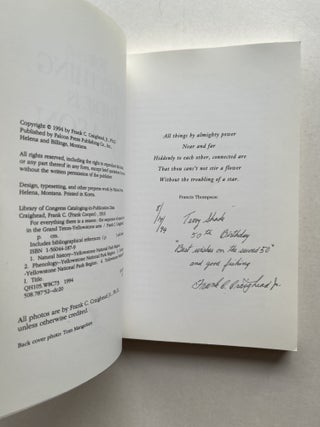 Copyright © 1994 by Frank C. Craighead, Jr., Ph.D.
Published by Falcon Press Publishing Co., Inc.
Helena and Billings, Montana.
All rights reserved, including the right to reproduce
or any part thereof in any form, except brief quotations
without the written permission of the publisher.
Design, typesetting, and other prepress work by
Helena, Montana. Printed in Korea.
Library of Congress Cataloging-in-Publication Data
Craighead, Frank C. (Frank Cooper),
For everything there is a season
in the Grand Teton-Yellowstone area
p. cm.
Includes bibliographical references
ISBN 1-56044-187-9
1. Natural history--Yellowstone National Park Region.
2. Phenology--Yellowstone National Park Region.
--Yellowstone National Park Region.
I. Title.
QH105.W8C73 1994
508.787'52--dc20
All photos are by Frank C. Craighead, Jr.,
unless otherwise credited.
Back cover photo: Tom Mangelsen
All things by almighty power
Near and far
Hiddenly to each other, connected are
That thou can'st not stir a flower
Without the troubling of a star.
Francis Thompson
5/
14/
94
50th Birthday
"Best wishes on the second 50"
and good fishing
Frank C Craighead Jr